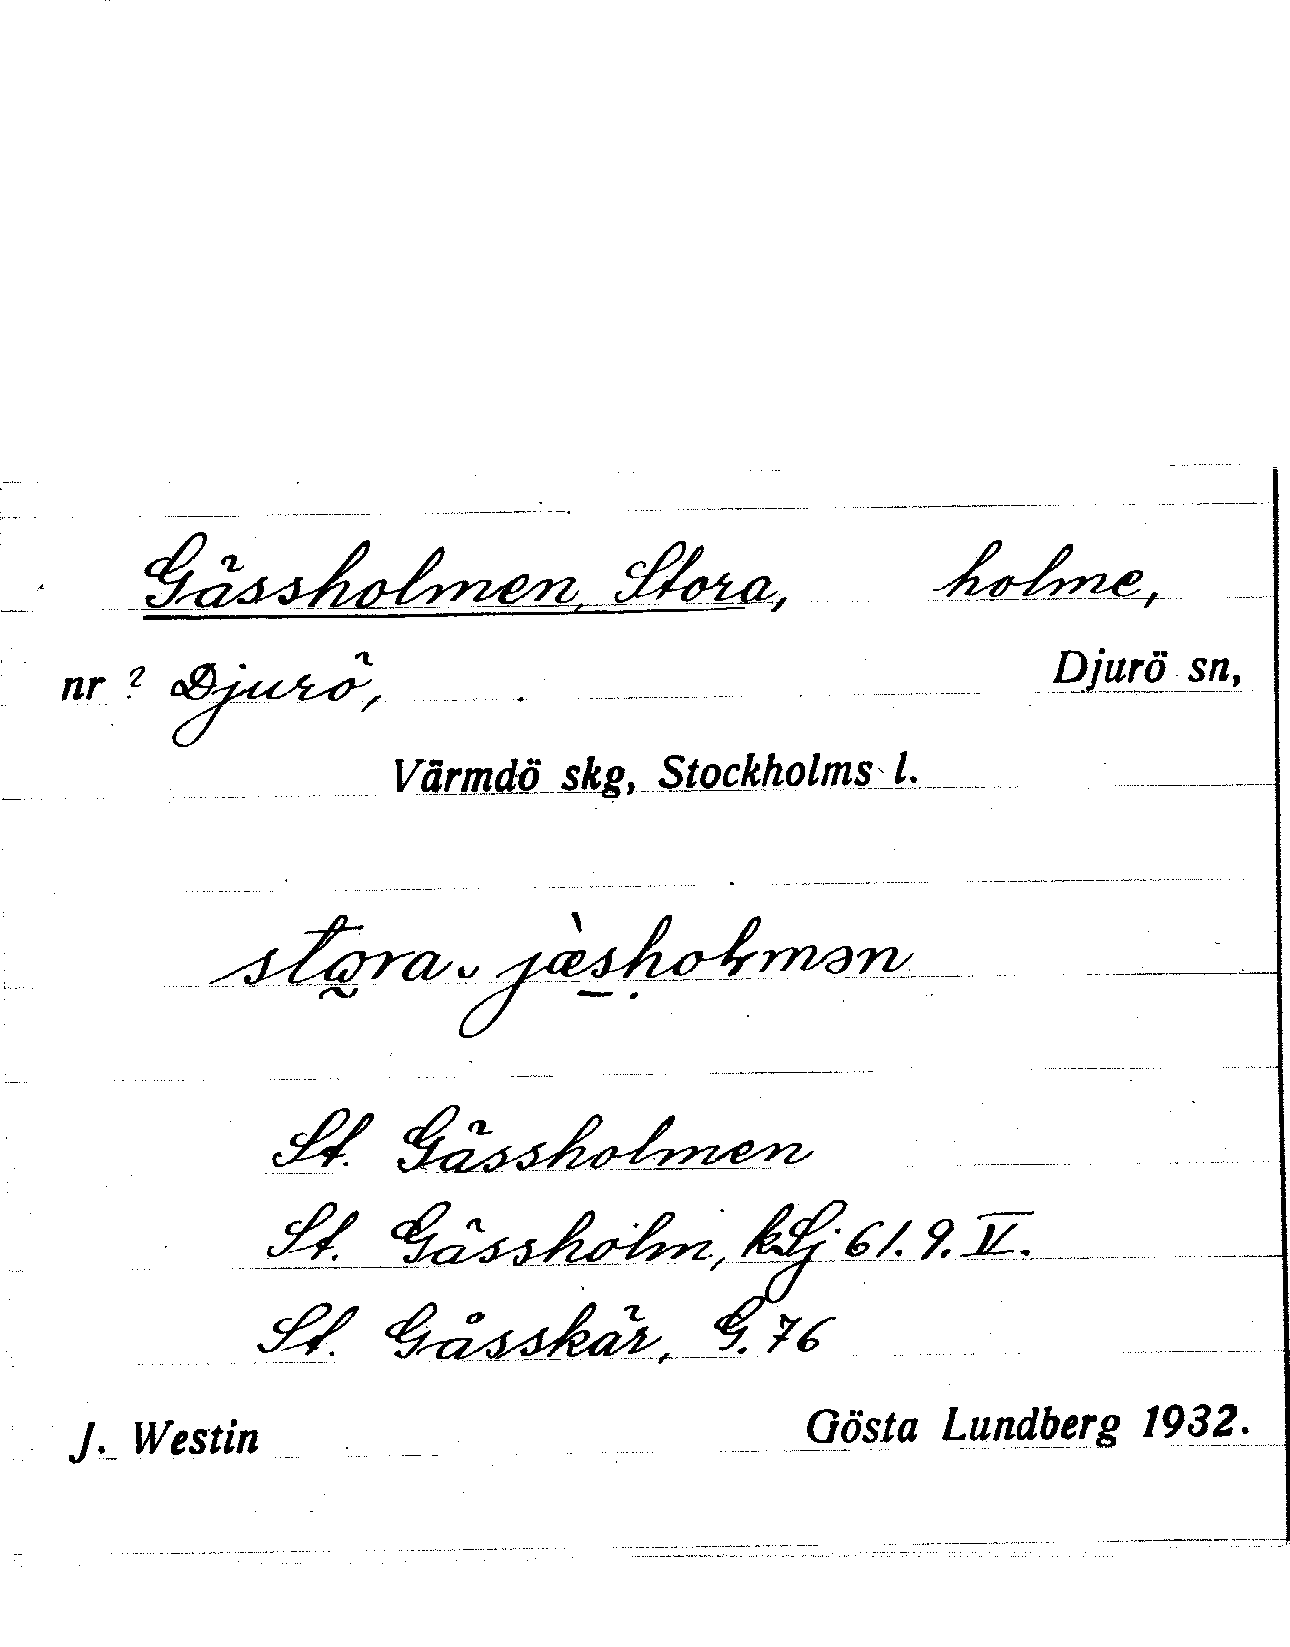 Gässholmen, Stora, holme,
nr ? Djurö, Djurö sn,
Värmdö skg, Stockholms l.
stora jæ̀sholmən
St. Gässholmen
St. Gässholm, kSj 61.9.V.
St. Gåsskär, G. 76
J. Westin Gösta Lundberg 1932.